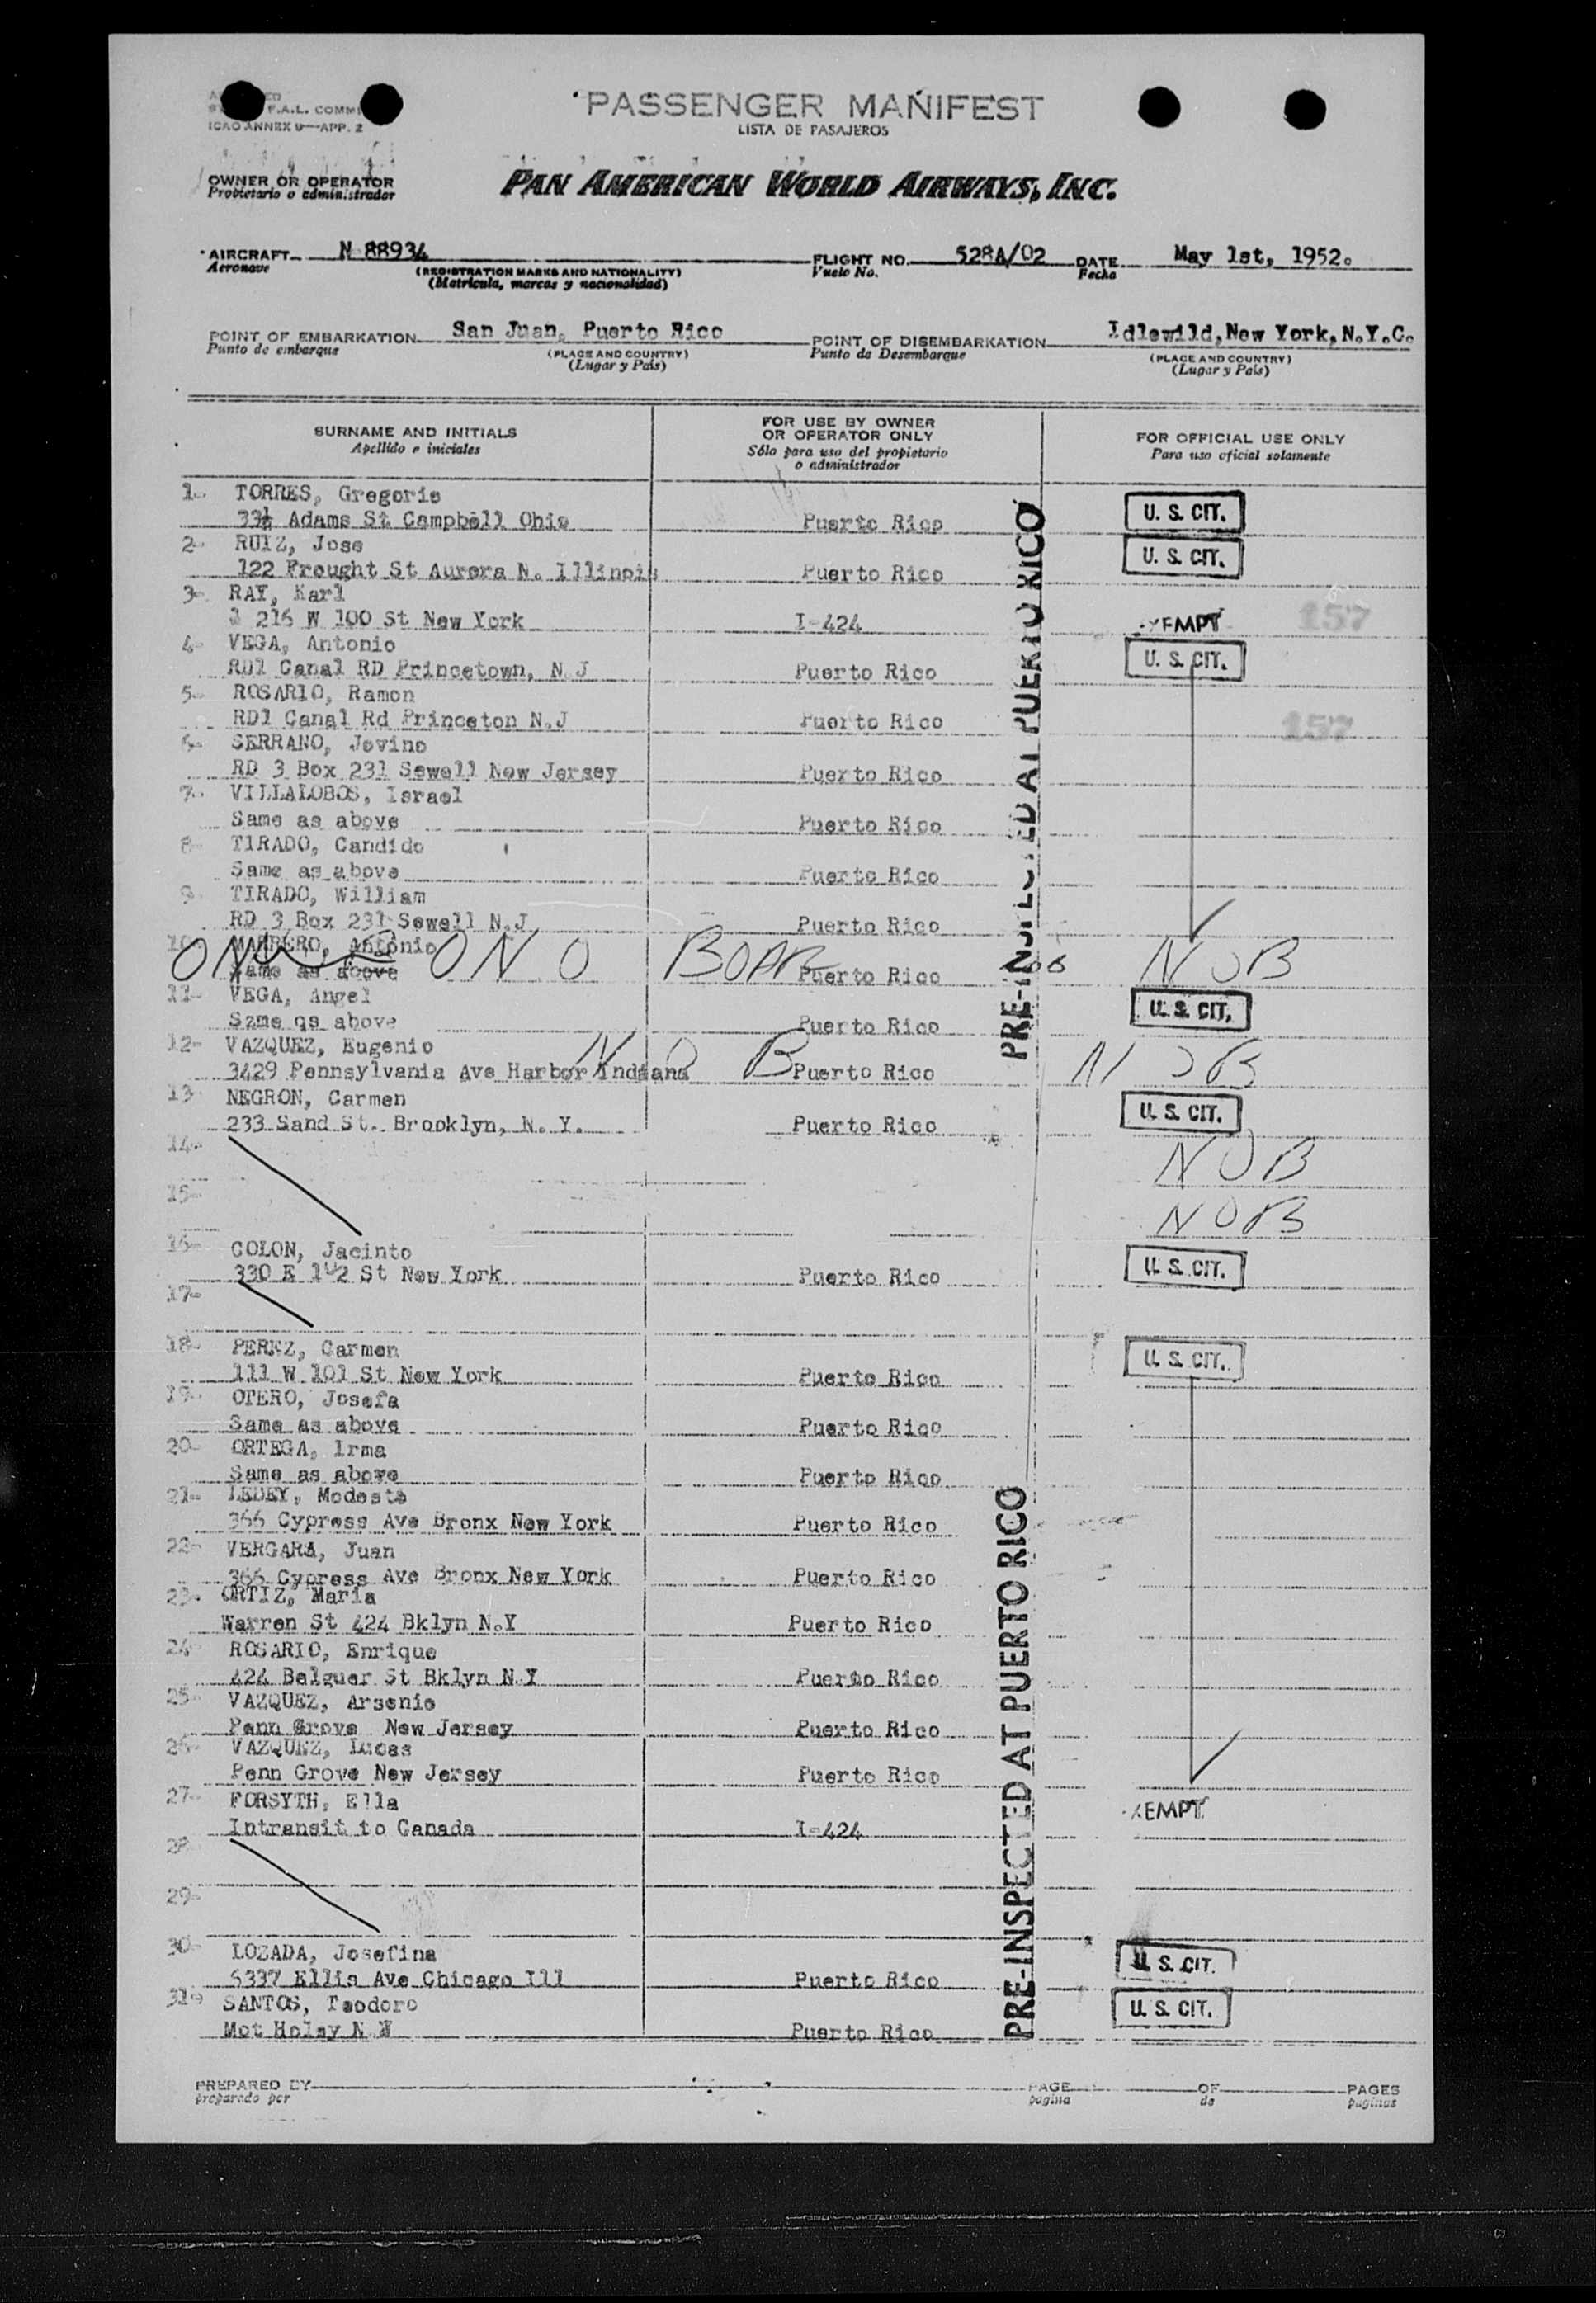 F.A.L. COMM
ICAO ANNEX 9—APP. 2
PASSENGER MANIFEST
LISTA DE PASAJEROS
OWNER OR OPERATOR
Propietario o administrador
PAN AMERICAN WORLD AIRWAYS, INC.
AIRCRAFT N 88934 FLIGHT NO. 528A/02 DATE May 1st, 1952.
Aeronave (REGISTRATION MARKS AND NATIONALITY) Vuelo No. Fecha
(Matrícula, marcas y nacionalidad)
POINT OF EMBARKATION San Juan, Puerto Rico POINT OF DISEMBARKATION Idlewild, New York, N.Y.C.
Punto de embarque (PLACE AND COUNTRY) Punto de Desembarque (PLACE AND COUNTRY)
(Lugar y País) (Lugar y País)
SURNAME AND INITIALS FOR USE BY OWNER OR OPERATOR ONLY FOR OFFICIAL USE ONLY
Apellido e iniciales Sólo para uso del propietario o administrador Para uso oficial solamente
1- TORRES, Gregorio
33½ Adams St Campbell Ohio Puerto Rico U. S. CIT.
2- RUIZ, Jose
122 Frought St Aurora N. Illinois Puerto Rico U. S. CIT.
3- RAY, Karl
216 W 100 St New York I-424 EMPT 157
4- VEGA, Antonio
RD1 Canal RD Princetown, N.J Puerto Rico U. S. CIT.
5- ROSARIO, Ramon
RD1 Canal Rd Princeton N.J Puerto Rico 157
6- SERRANO, Jovino
RD 3 Box 231 Sewell New Jersey Puerto Rico
7- VILLALOBOS, Israel
Same as above Puerto Rico
8- TIRADO, Candido
Same as above Puerto Rico
9- TIRADO, William
RD 3 Box 231 Sewell N.J Puerto Rico
10- MARRERO, Antonio
Same as above ONO BOAR Puerto Rico NOB
11- VEGA, Angel
Szme qs above Puerto Rico U. S. CIT.
12- VAZQUEZ, Eugenio NOB
3429 Pennsylvania Ave Harbor Indiana Puerto Rico NOB
13- NEGRON, Carmen
233 Sand St. Brooklyn, N. Y. Puerto Rico U. S. CIT.
14- NOB
15- NOB
16- COLON, Jacinto
330 E 102 St New York Puerto Rico U. S. CIT.
17-
18- PEREZ, Carmen
111 W 101 St New York Puerto Rico U. S. CIT.
19- OTERO, Josefa
Same as above Puerto Rico
20- ORTEGA, Irma
Same as above Puerto Rico
21- LEDEY, Modesta
366 Cypress Ave Bronx New York Puerto Rico
22- VERGARA, Juan
366 Cypress Ave Bronx New York Puerto Rico
23- ORTIZ, Maria
Warren St 424 Bklyn N.Y Puerto Rico
24- ROSARIO, Enrique
424 Balguer St Bklyn N.Y Puerto Rico
25- VAZQUEZ, Arsenio
Penn Grove New Jersey Puerto Rico
26- VAZQUEZ, Lucas
Penn Grove New Jersey Puerto Rico
27- FORSYTH, Ella
Intransit to Canada I-424 EMPT
28-
29-
30- LOZADA, Josefina
5337 Ellis Ave Chicago Ill Puerto Rico U. S. CIT.
31- SANTOS, Teodoro
Mot Holey N W Puerto Rico U. S. CIT.
PRE-INSPECTED AT PUERTO RICO
PRE-INSPECTED AT PUERTO RICO
PREPARED BY PAGE OF PAGES
preparado por página de páginas